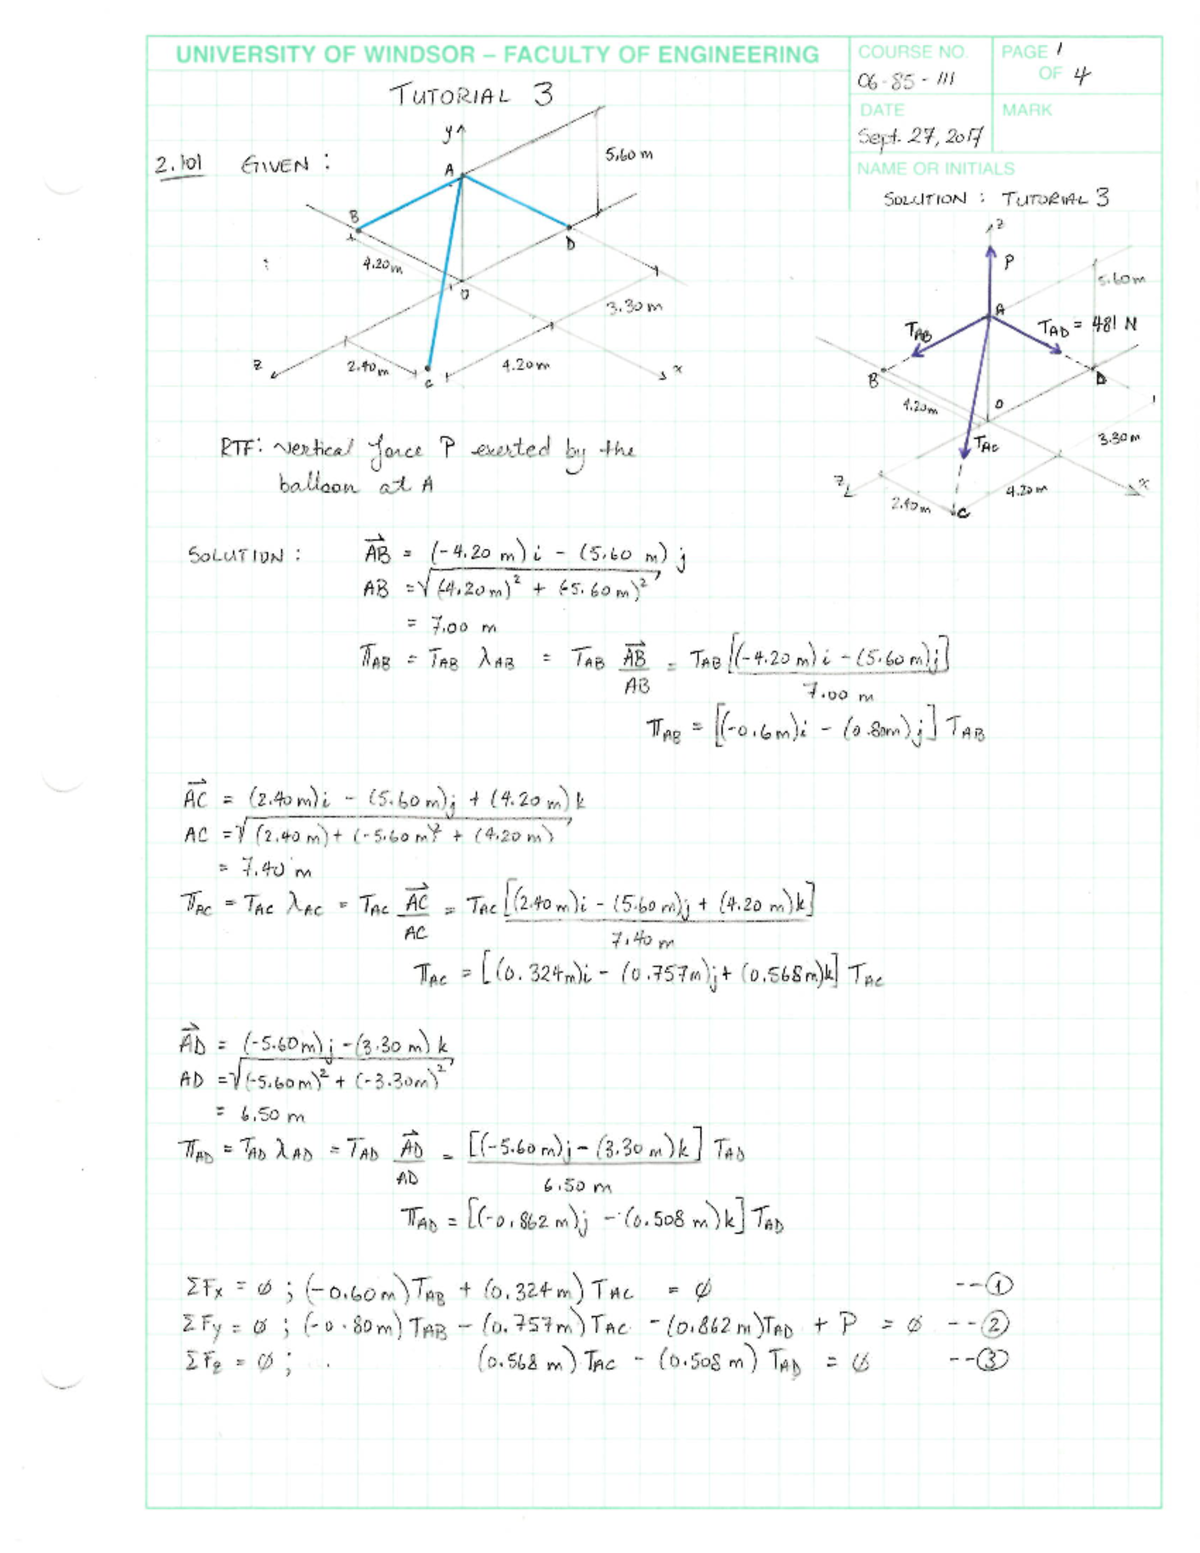 UNIVERSITY OF WINDSOR – FACULTY OF ENGINEERING
COURSE NO.
06-85-111
PAGE 1
OF 4
DATE
Sept. 27, 2017
MARK
NAME OR INITIALS
SOLUTION : TUTORIAL 3
TUTORIAL 3
2.101 GIVEN :
y
A
5.60 m
B
4.20 m
D
O
3.30 m
z
2.40 m
C
4.20 m
x
z
P
5.60 m
A
T_AB
T_AD = 481 N
B
D
4.20m
O
T_AC
3.30 m
z
2.40 m
C
4.20 m
x
RTF: vertical force P exerted by the
balloon at A
SOLUTION : AB = (-4.20 m) i - (5.60 m) j
AB = √(-4.20 m)² + (-5.60 m)²
= 7.00 m
T_AB = T_AB λ_AB = T_AB AB/AB = T_AB [(-4.20 m) i - (5.60 m) j] / 7.00 m
T_AB = [(-0.6m)i - (0.80m)j] T_AB
AC = (2.40 m)i - (5.60 m)j + (4.20 m) k
AC = √(2.40 m) + (-5.60 m)² + (4.20 m)
= 7.40 m
T_AC = T_AC λ_AC = T_AC AC/AC = T_AC [(2.40 m)i - (5.60 m)j + (4.20 m)k] / 7.40 m
T_AC = [(0.324m)i - (0.757m)j + (0.568m)k] T_AC
AD = (-5.60m)j - (3.30 m) k
AD = √(-5.60m)² + (-3.30m)²
= 6.50 m
T_AD = T_AD λ_AD = T_AD AD/AD = [(-5.60 m)j - (3.30 m)k] T_AD / 6.50 m
T_AD = [(-0.862 m)j - (0.508 m)k] T_AD
ΣFx = ∅ ; (-0.60m) T_AB + (0.324m) T_AC = ∅ --①
ΣFy = ∅ ; (-0.80m) T_AB - (0.757m) T_AC - (0.862 m)T_AD + P = ∅ --②
ΣFz = ∅ ; (0.568 m) T_AC - (0.508 m) T_AD = ∅ --③